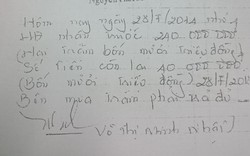 Hôm nay ngày 28/7/2011
HB nhận trước 240.000.000
(Hai trăm bốn mươi triệu đồng)
Số tiền còn lại 40.000.000
(Bốn mươi triệu đồng) 28/7/2011
Bên mua trăm phải trả đủ
Võ Thị Minh Nhội